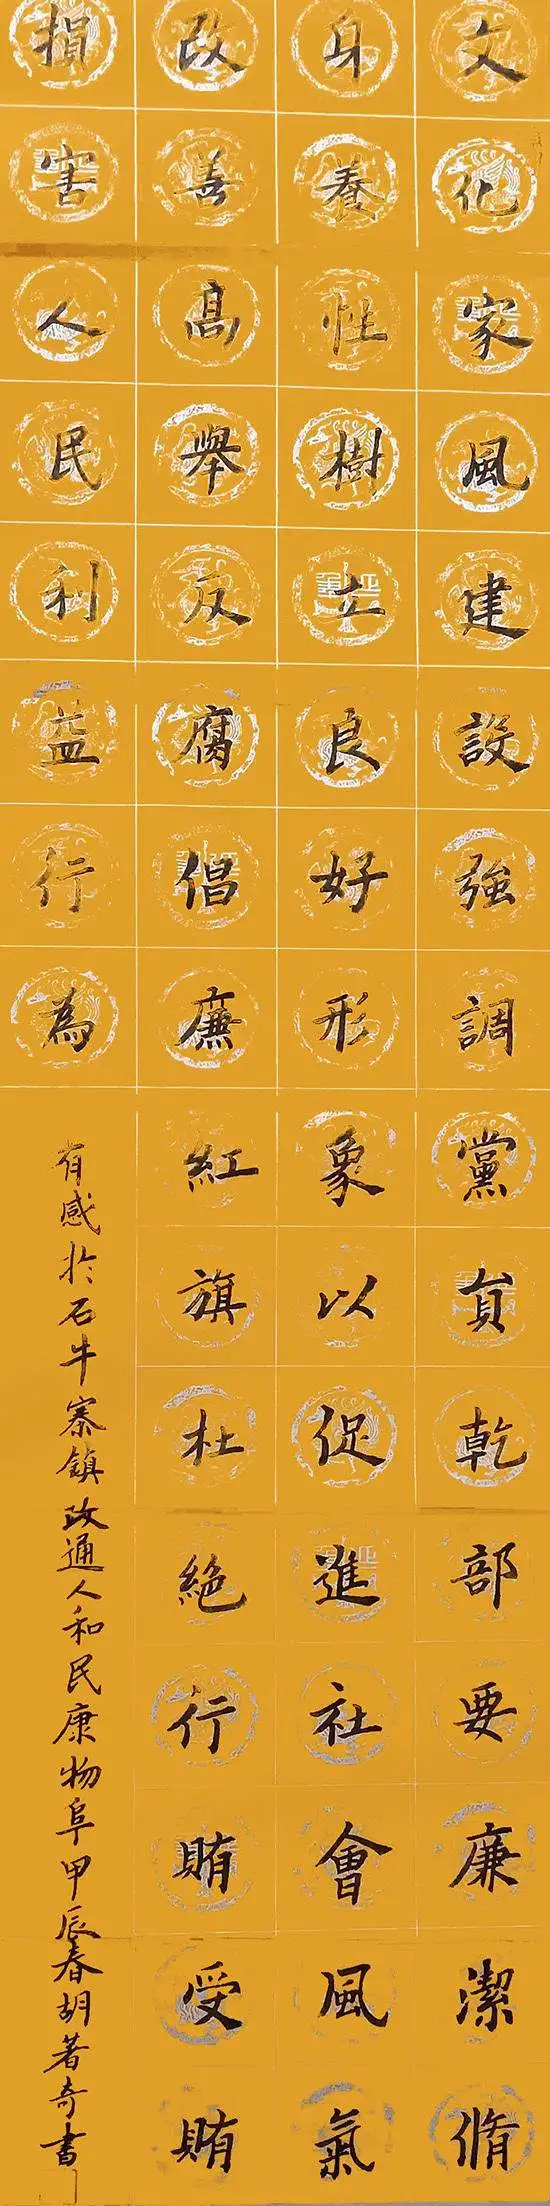 文化家風建設強調黨員乾部要廉潔脩
身養性樹立良好形象以促進社會風氣
改善高舉反腐倡廉紅旗杜絕行賄受賄
損害人民利益行為
有感於石牛寨鎮政通人和民康物阜甲辰春胡著奇書